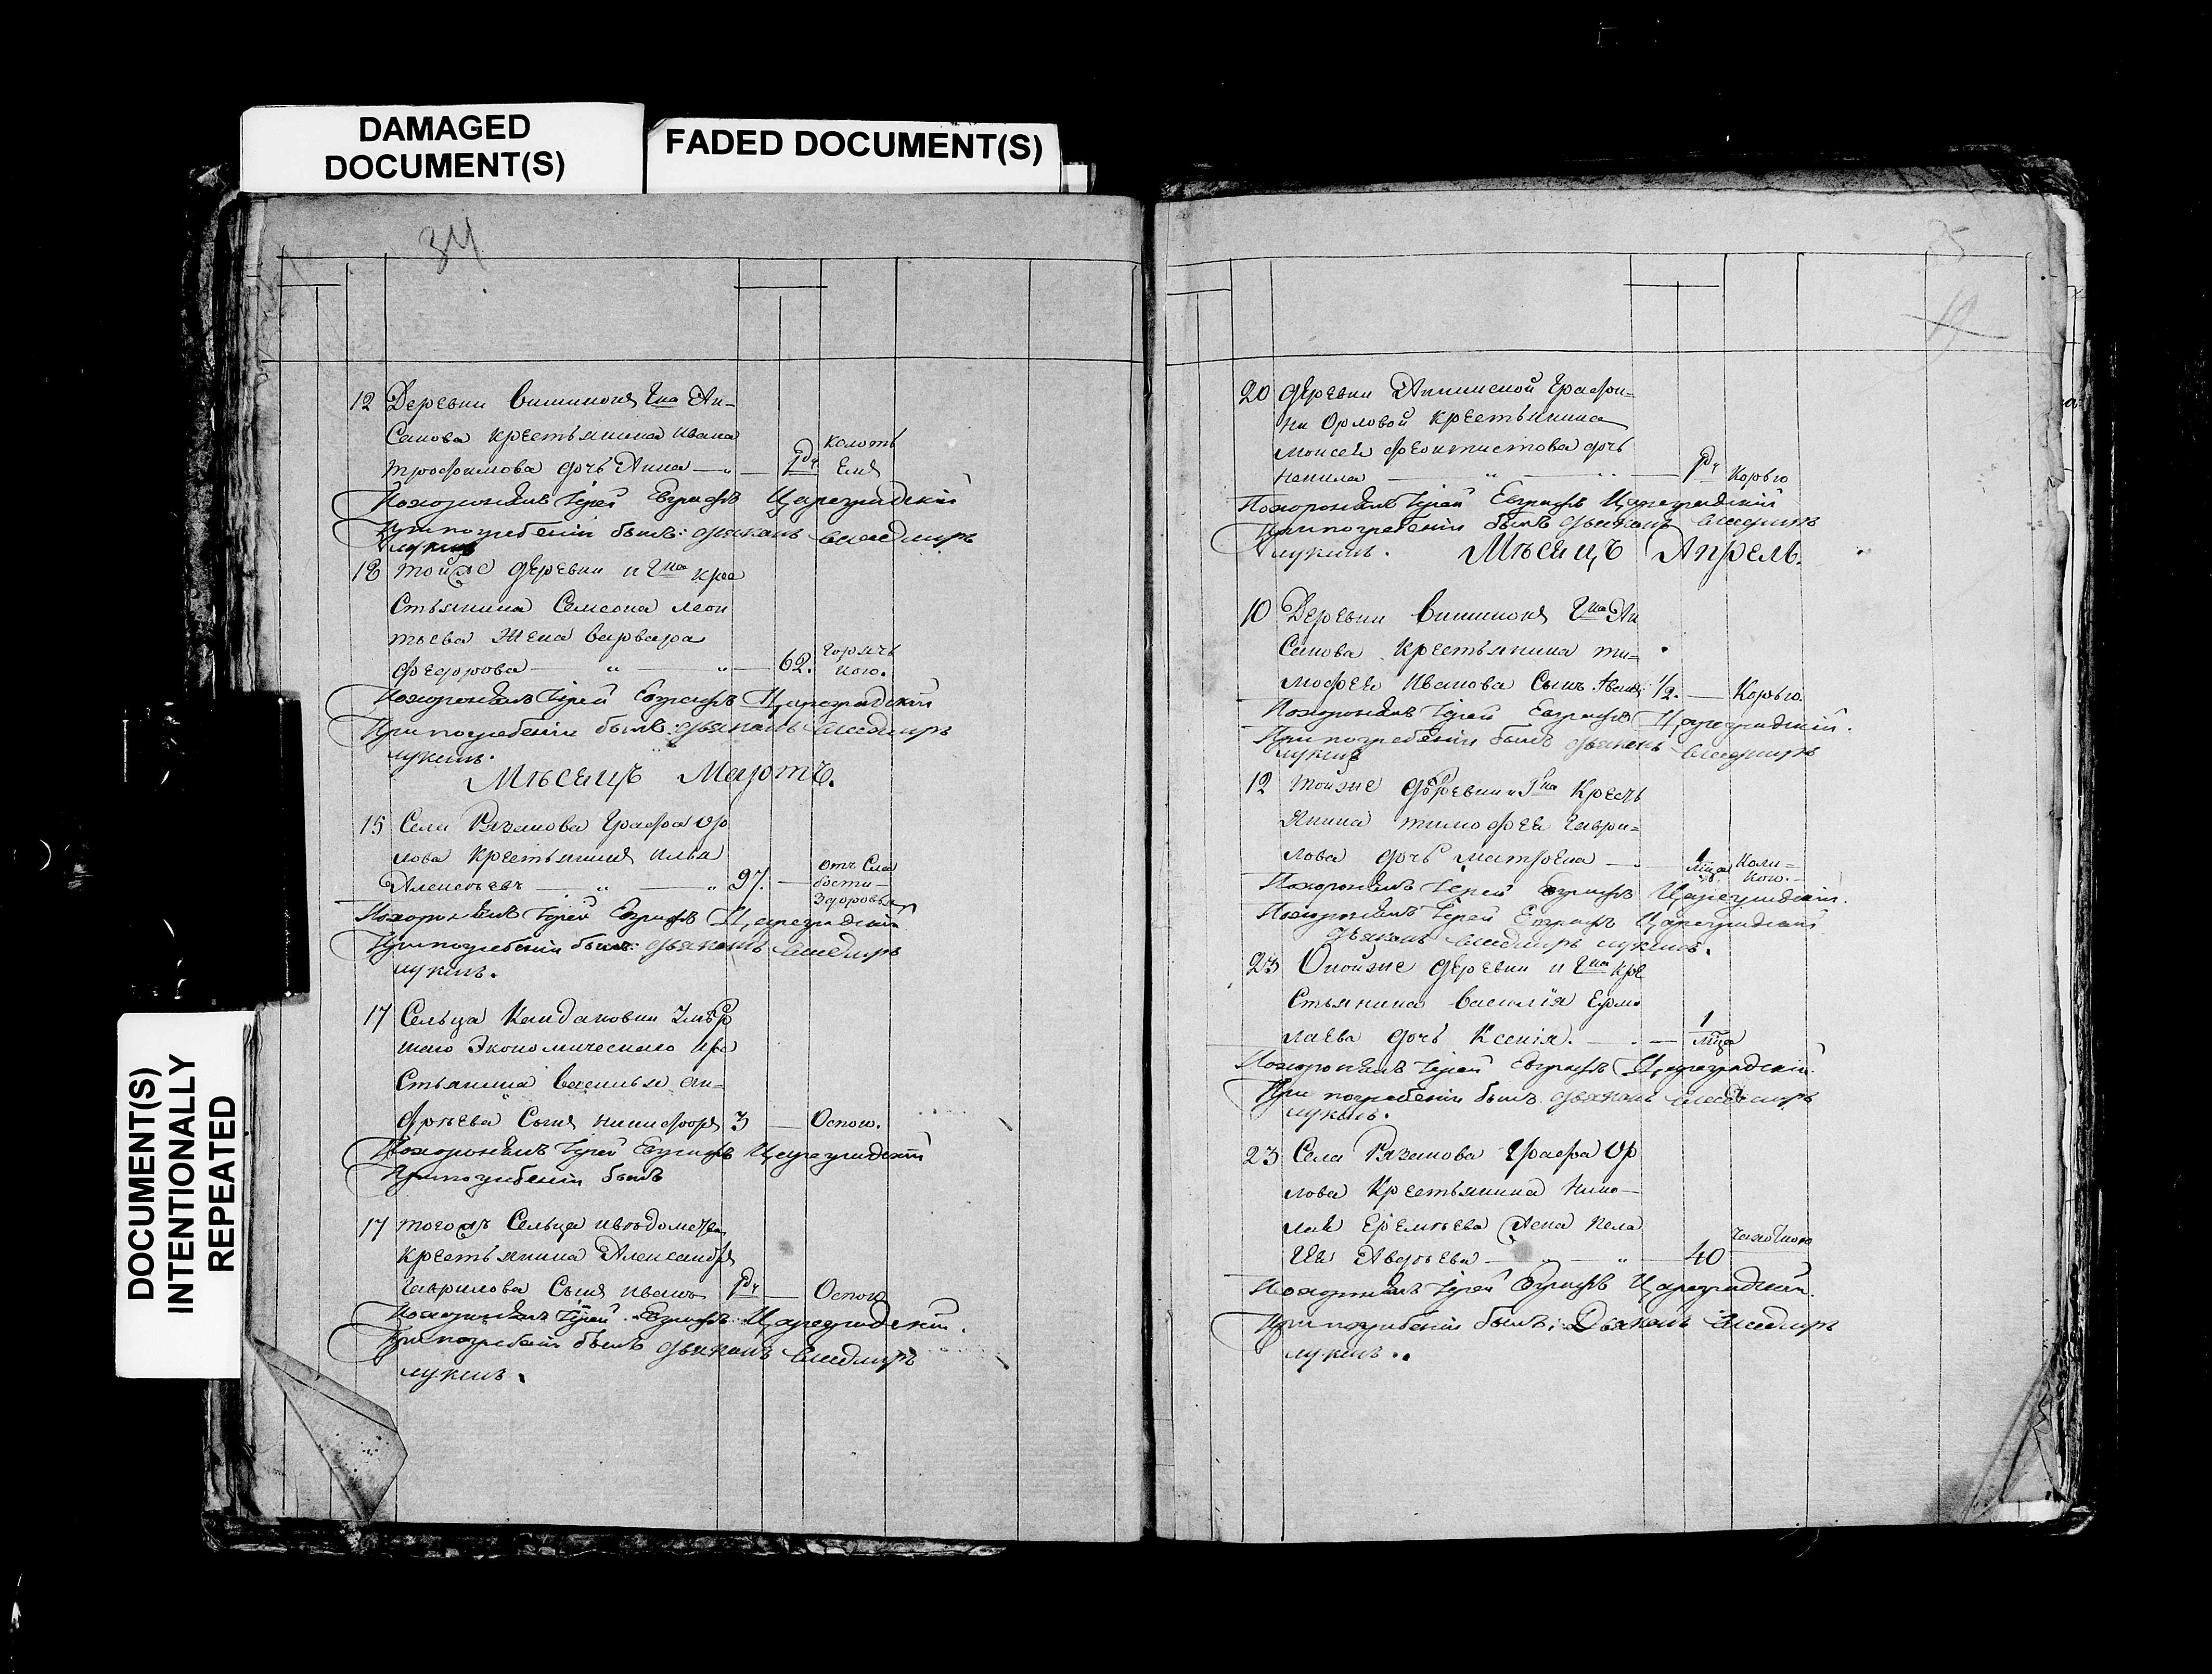 DAMAGED
DOCUMENT(S)
FADED DOCUMENT(S)
DOCUMENT(S)
INTENTIONALLY
REPEATED
34
12 Деревни Вишинокъ Гна Ан-
сапова крестьянина Ивана
Трофимова дочь Анна — 1 дч колоть
емъ
Похоронилъ Іерей Евграфъ Цареградскій
При погребеніи былъ: дьяконъ Владимиръ
Лукинъ
18 Той же деревни и Гна кре
стьянина Симеона Леон
тьева жена Варвара
Федорова — " — " — 62. горяч
кою.
Похоронилъ Іерей Евграфъ Цареградскій
При погребеніи былъ: дьяконъ Владимиръ
Лукинъ.
Мѣсяцъ Мартъ.
15 Села Рязанова Графа Ор
лова крестьянинъ Илья
Алексѣевъ — " — " 97. — отъ сла
бости
здоровья
Похоронилъ Іерей Евграфъ Цареградскій
При погребеніи былъ: дьяконъ Владимиръ
Лукинъ.
17 Сельца Кандаковки
экономическаго кре
стьянина Василья
сынъ Никифоръ 3 — Оспою.
Похоронилъ Іерей Евграфъ Цареградскій
При погребеніи былъ
17 Того жъ сельца и вѣдомства
крестьянина Александра
Гаврилова сынъ Иванъ — Оспою
Похоронилъ Іерей Евграфъ Цареградскій.
При погребеніи былъ дьяконъ Владимиръ
Лукинъ.
20 Деревни Аннинской Графи-
ни Орловой крестьянина
Моисея Феоктистова дочь
Ненила — " — " — Корью
Похоронилъ Іерей Евграфъ Цареградскій
При погребеніи былъ дьяконъ Владимиръ
Лукинъ.
Мѣсяцъ Апрель.
10 Деревни Вишинокъ Гна Ан
сапова крестьянина Ти=
мофея Иванова сынъ 1/2. — Корью.
Похоронилъ Іерей Евграфъ Цареградскій.
При погребеніи былъ дьяконъ Владимиръ
Лукинъ
12 Той же деревни и Гна кресть
янина Тимофея Гаври=
лова дочь Матрона — 1 мца Коли=
кою.
Похоронилъ Іерей Евграфъ Цареградскій.
Похоронилъ Іерей Евграфъ Цареградскій
дьяконъ Владимиръ Лукинъ.
23 Оной же деревни и Гна кре
стьянина Василія Ермо
лаева дочь Ксенія. — 1 мца
Похоронилъ Іерей Евграфъ Цареградскій.
При погребеніи былъ дьяконъ Владимиръ
Лукинъ.
23 Села Рязанова Графа Ор
лова крестьянина Нико-
лая Еремѣева жена Пела
гея — " — 40 чахоткою
Похоронилъ Іерей Евграфъ Цареградскій.
При погребеніи былъ: Дьяконъ Владимиръ
Лукинъ.